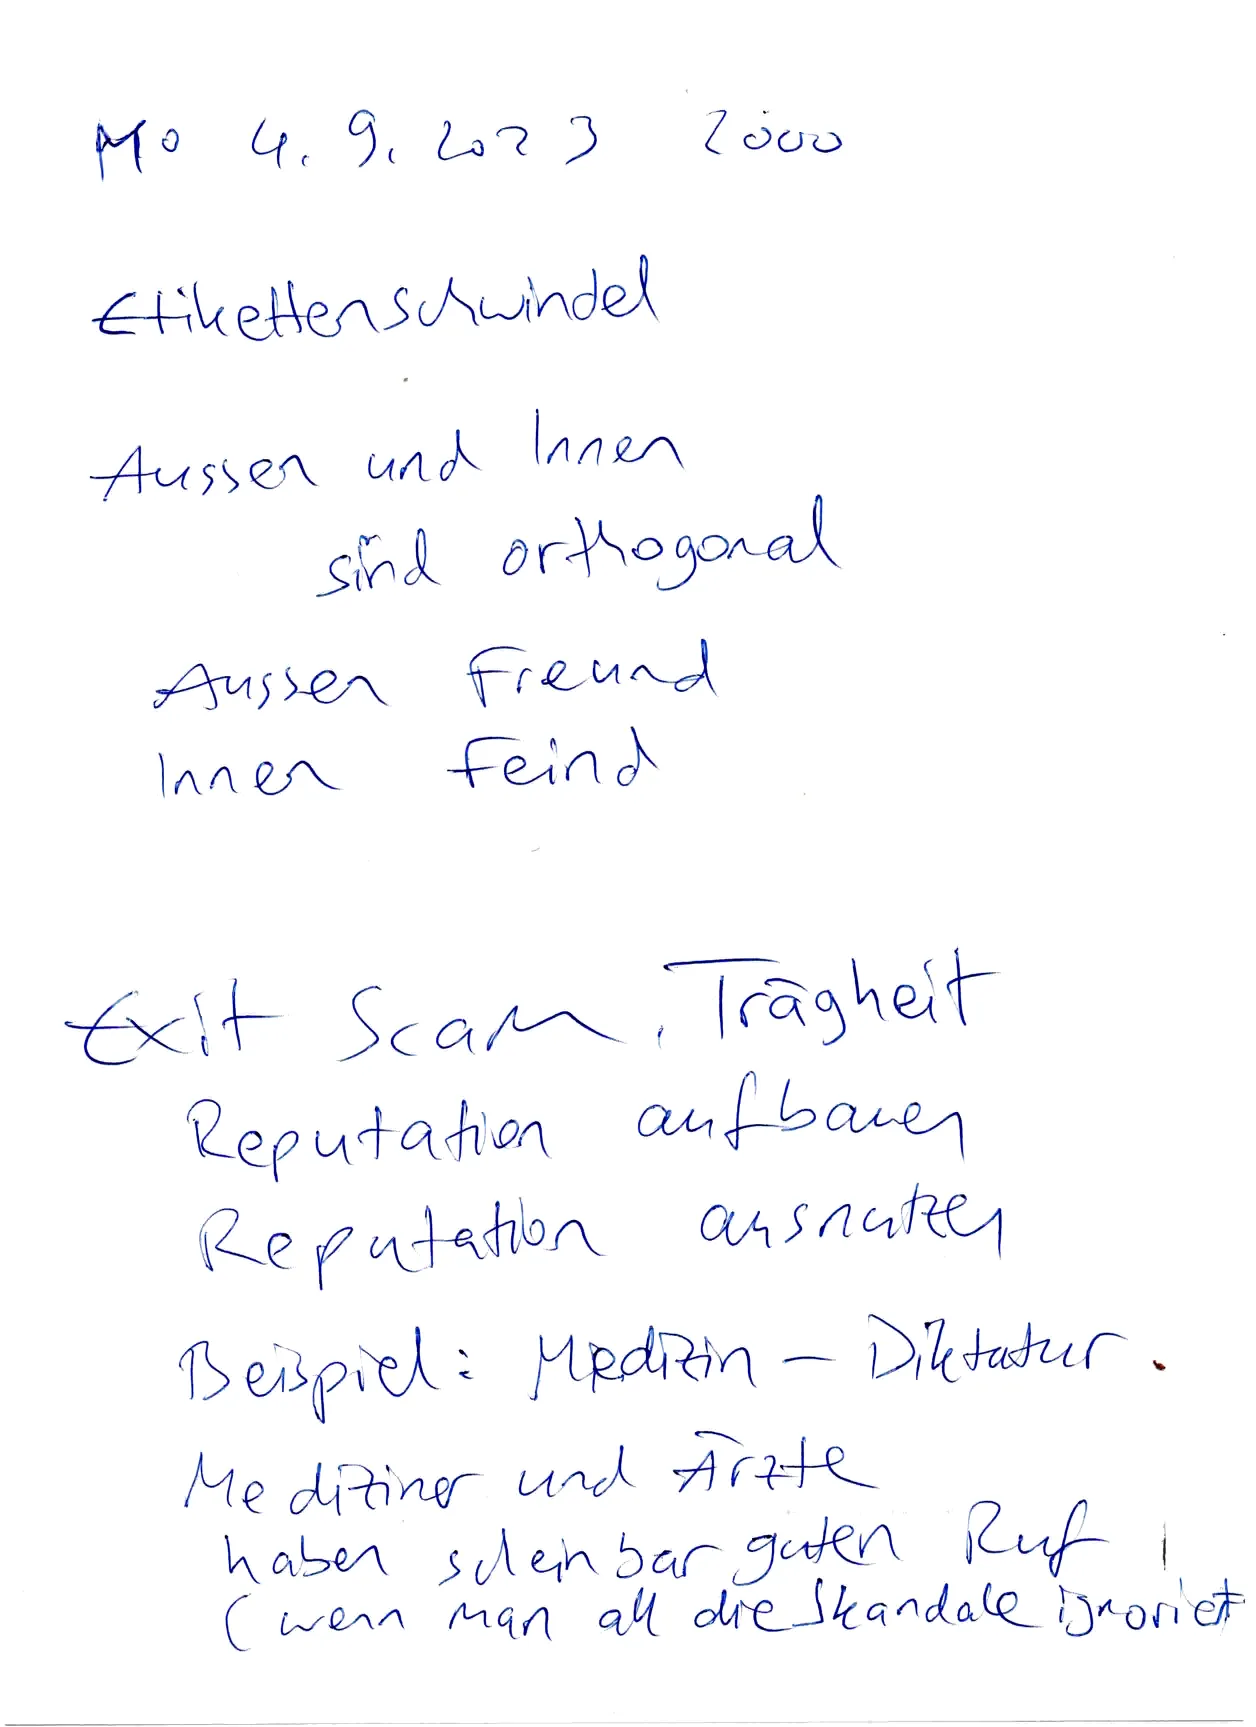 Mo 4.9.2023 2000
Etikettenschwindel
Aussen und Innen
sind orthogonal
Aussen Freund
Innen Feind
Exit Scam, Trägheit
Reputation aufbauen
Reputation ausnutzen
Beispiel: Medizin - Diktatur.
Mediziner und Ärzte
haben scheinbar guten Ruf
(wenn man all die Skandale ignoriert